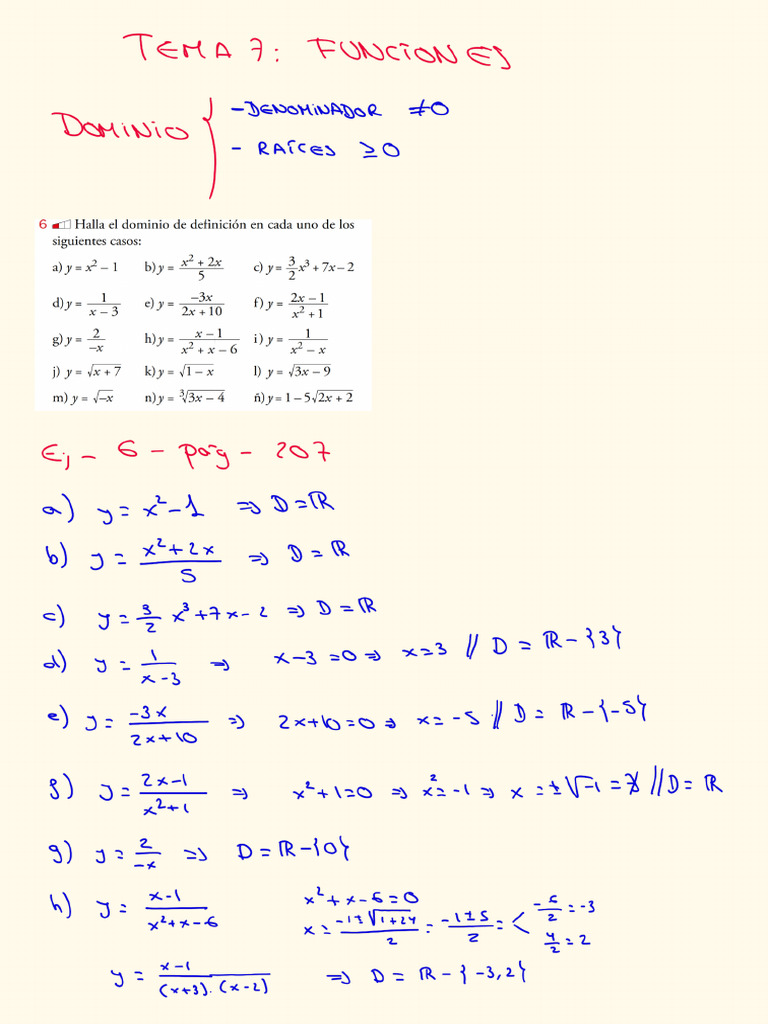 TEMA 7: FUNCIONES
DOMINIO { - DENOMINADOR ≠ 0
- RAÍCES ≥ 0
6 Halla el dominio de definición en cada uno de los
siguientes casos:
a) y = x² – 1 b) y = (x² + 2x)/5 c) y = 3/2 x³ + 7x – 2
d) y = 1/(x – 3) e) y = –3x/(2x + 10) f) y = (2x – 1)/(x² + 1)
g) y = 2/–x h) y = (x – 1)/(x² + x – 6) i) y = 1/(x² – x)
j) y = √(x + 7) k) y = √(1 – x) l) y = √(3x – 9)
m) y = √(–x) n) y = ³√(3x – 4) ñ) y = 1 – 5√(2x + 2)
Ej - 6 - pág - 207
a) y = x² - 1 ⇒ D = ℝ
b) y = (x² + 2x)/5 ⇒ D = ℝ
c) y = 3/2 x³ + 7x - 2 ⇒ D = ℝ
d) y = 1/(x - 3) ⇒ x - 3 = 0 ⇒ x = 3 // D = ℝ - {3}
e) y = -3x/(2x + 10) ⇒ 2x + 10 = 0 ⇒ x = -5 // D = ℝ - {-5}
f) y = (2x - 1)/(x² + 1) ⇒ x² + 1 = 0 ⇒ x² = -1 ⇒ x = ±√-1 = ∄ // D = ℝ
g) y = 2/-x ⇒ D = ℝ - {0}
h) y = (x - 1)/(x² + x - 6) x² + x - 6 = 0
x = (-1 ± √(1 + 24))/2 = (-1 ± 5)/2 = < -6/2 = -3
4/2 = 2
y = (x - 1)/((x + 3) · (x - 2)) ⇒ D = ℝ - {-3, 2}